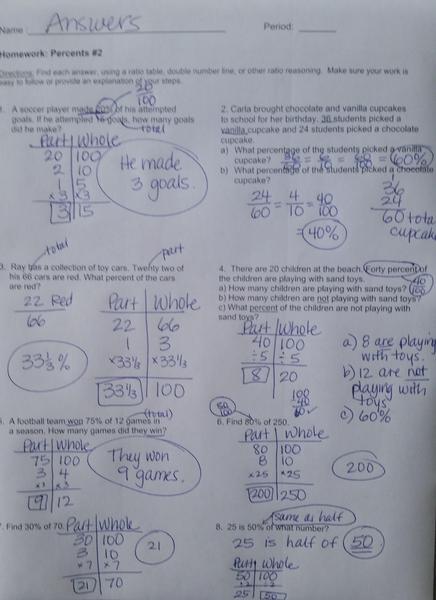 Name Answers Period:
Homework: Percents #2
Directions: Find each answer, using a ratio table, double number line, or other ratio reasoning. Make sure your work is
easy to follow or provide an explanation of your steps.
20
100
1. A soccer player made 20% of his attempted
goals. If he attempted 15 goals, how many goals
did he make?
total
Part Whole
20 100
2 10
1 5
×3 ×3
3 15
He made
3 goals.
2. Carla brought chocolate and vanilla cupcakes
to school for her birthday. 36 students picked a
vanilla cupcake and 24 students picked a chocolate
cupcake.
a) What percentage of the students picked a vanilla
cupcake? 60%
b) What percentage of the students picked a chocolate
cupcake?
24/60 = 4/10 = 40/100
= 40%
36
24
60 total
cupcakes
total
part
3. Ray has a collection of toy cars. Twenty two of
his 66 cars are red. What percent of the cars
are red?
22 Red
66
33⅓ %
Part Whole
22 66
1 3
×33⅓ ×33⅓
33⅓ 100
4. There are 20 children at the beach. Forty percent of
the children are playing with sand toys.
40
100
a) How many children are playing with sand toys?
b) How many children are not playing with sand toys?
c) What percent of the children are not playing with
sand toys?
Part Whole
40 100
÷5 ÷5
8 20
100
-40
60
a) 8 are playing
with toys.
b) 12 are not
playing with
toys
c) 60%
(total)
5. A football team won 75% of 12 games in
a season. How many games did they win?
Part Whole
75 100
3 4
×3 ×3
9 12
They won
9 games.
6. Find 80% of 250.
Part Whole
80 100
8 10
×25 ×25
200 250
200
7. Find 30% of 70.
Part Whole
30 100
3 10
×7 ×7
21 70
21
same as half
8. 25 is 50% of what number?
25 is half of 50
Part Whole
50 100
÷2 ÷2
25 50